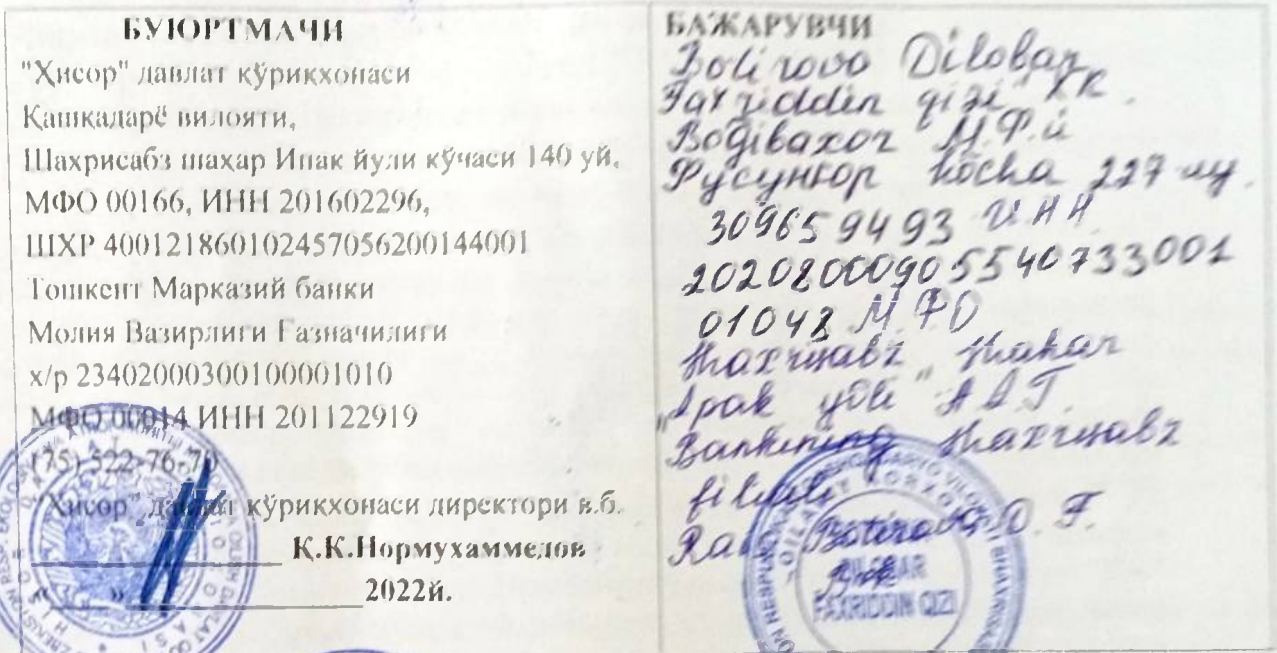 БУЮРТМАЧИ
"Ҳисор" давлат қўриқхонаси
Қашқадарё вилояти,
Шахрисабз шаҳар Ипак йули кўчаси 140 уй.
МФО 00166, ИНН 201602296,
ШХР 400121860102457056200144001
Тошкент Марказий банки
Молия Вазирлиги Ғазначилиги
х/р 23402000300100001010
МФО 00014 ИНН 201122919
(75) 522-76-70
"Ҳисор" давлат қўриқхонаси директори в.б.
Қ.К.Нормухаммедов
«___»____________2022й.
БАЖАРУВЧИ
Dilobar
qizi" XK.
M.Ф.й
Русункор kocha 227-uy.
309659493 ИНН
20208000905540733001
01048 МФО
Шахrisabz shahar
"Ipak yoli" ААТ.
Bankining Шахrisabz
filiali
DILOBAR
FAXRIDDIN QIZI